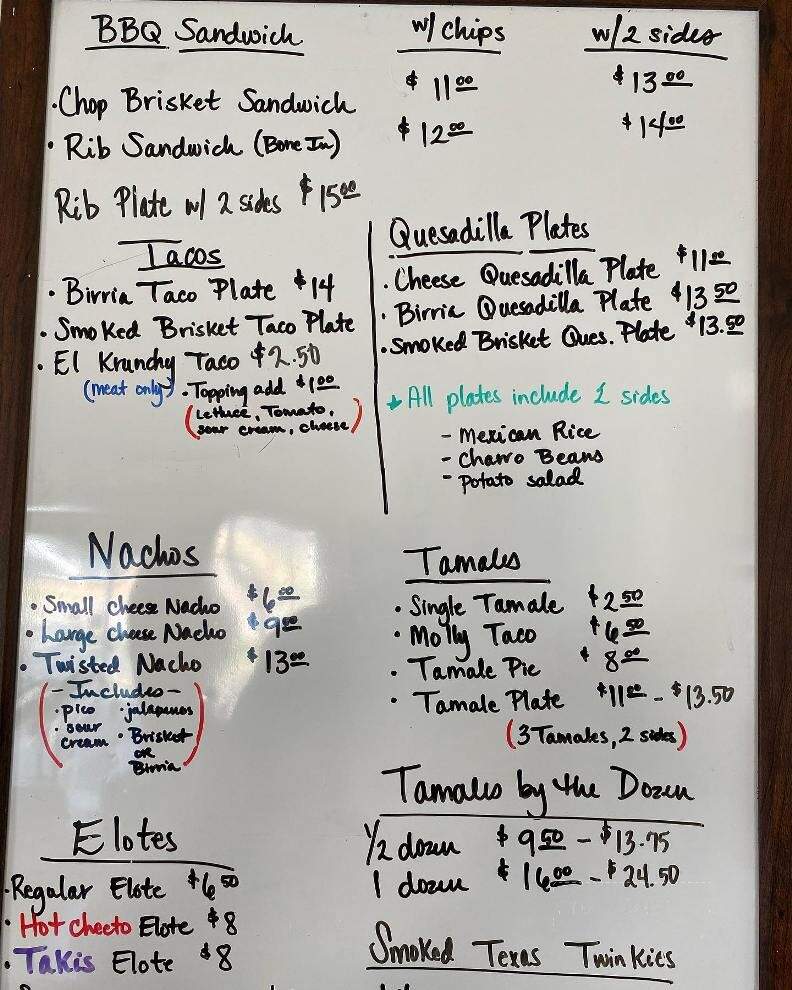 BBQ Sandwich w/ chips w/ 2 sides
·Chop Brisket Sandwich $11.00 $13.00
·Rib Sandwich (Bone In) $12.00 $14.00
Rib Plate w/ 2 sides $15.00
Tacos
·Birria Taco Plate $14
·Smoked Brisket Taco Plate
·El Krunchy Taco $2.50
(meat only) ·Topping add $1.00
(Lettuce, Tomato,
sour cream, cheese)
Quesadilla Plates
·Cheese Quesadilla Plate $11.00
·Birria Quesadilla Plate $13.50
·Smoked Brisket Ques. Plate $13.50
All plates include 2 sides
- Mexican Rice
- Charro Beans
- Potato salad
Nachos
·Small cheese Nacho $6.00
·Large cheese Nacho $9.00
·Twisted Nacho $13.00
(- Includes -
·pico ·jalapenos
·sour
cream ·Brisket
or
Birria)
Tamales
·Single Tamale $2.50
·Molly Taco $6.50
·Tamale Pie $8.00
·Tamale Plate $11.00 - $13.50
(3 Tamales, 2 sides)
Tamales by the Dozen
1/2 dozen $9.50 - $13.75
1 dozen $16.00 - $24.50
Elotes
·Regular Elote $6.50
·Hot Cheeto Elote $8
·Takis Elote $8
Smoked Texas Twinkies